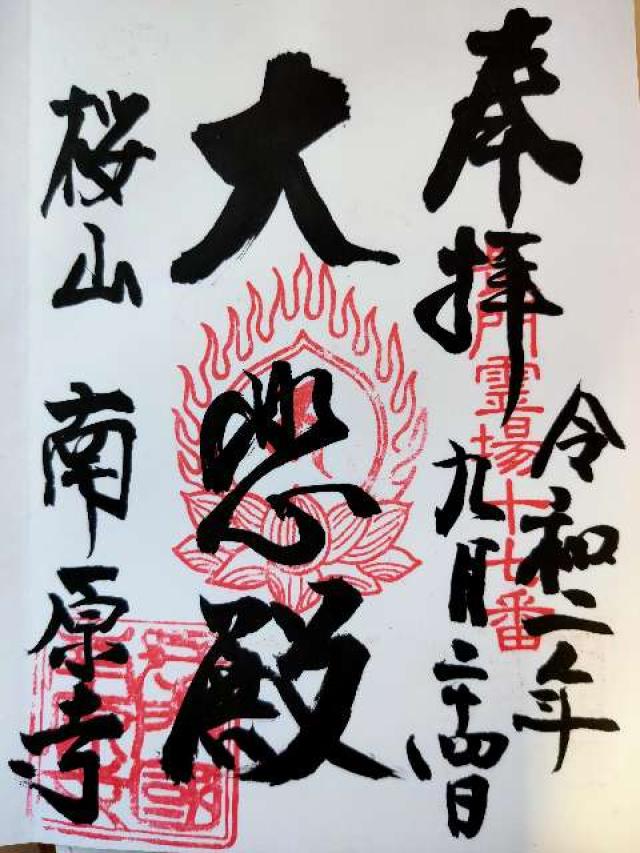 奉拝
令和二年
九月二十四日
霊場十七番
大悲殿
桜山
南原寺